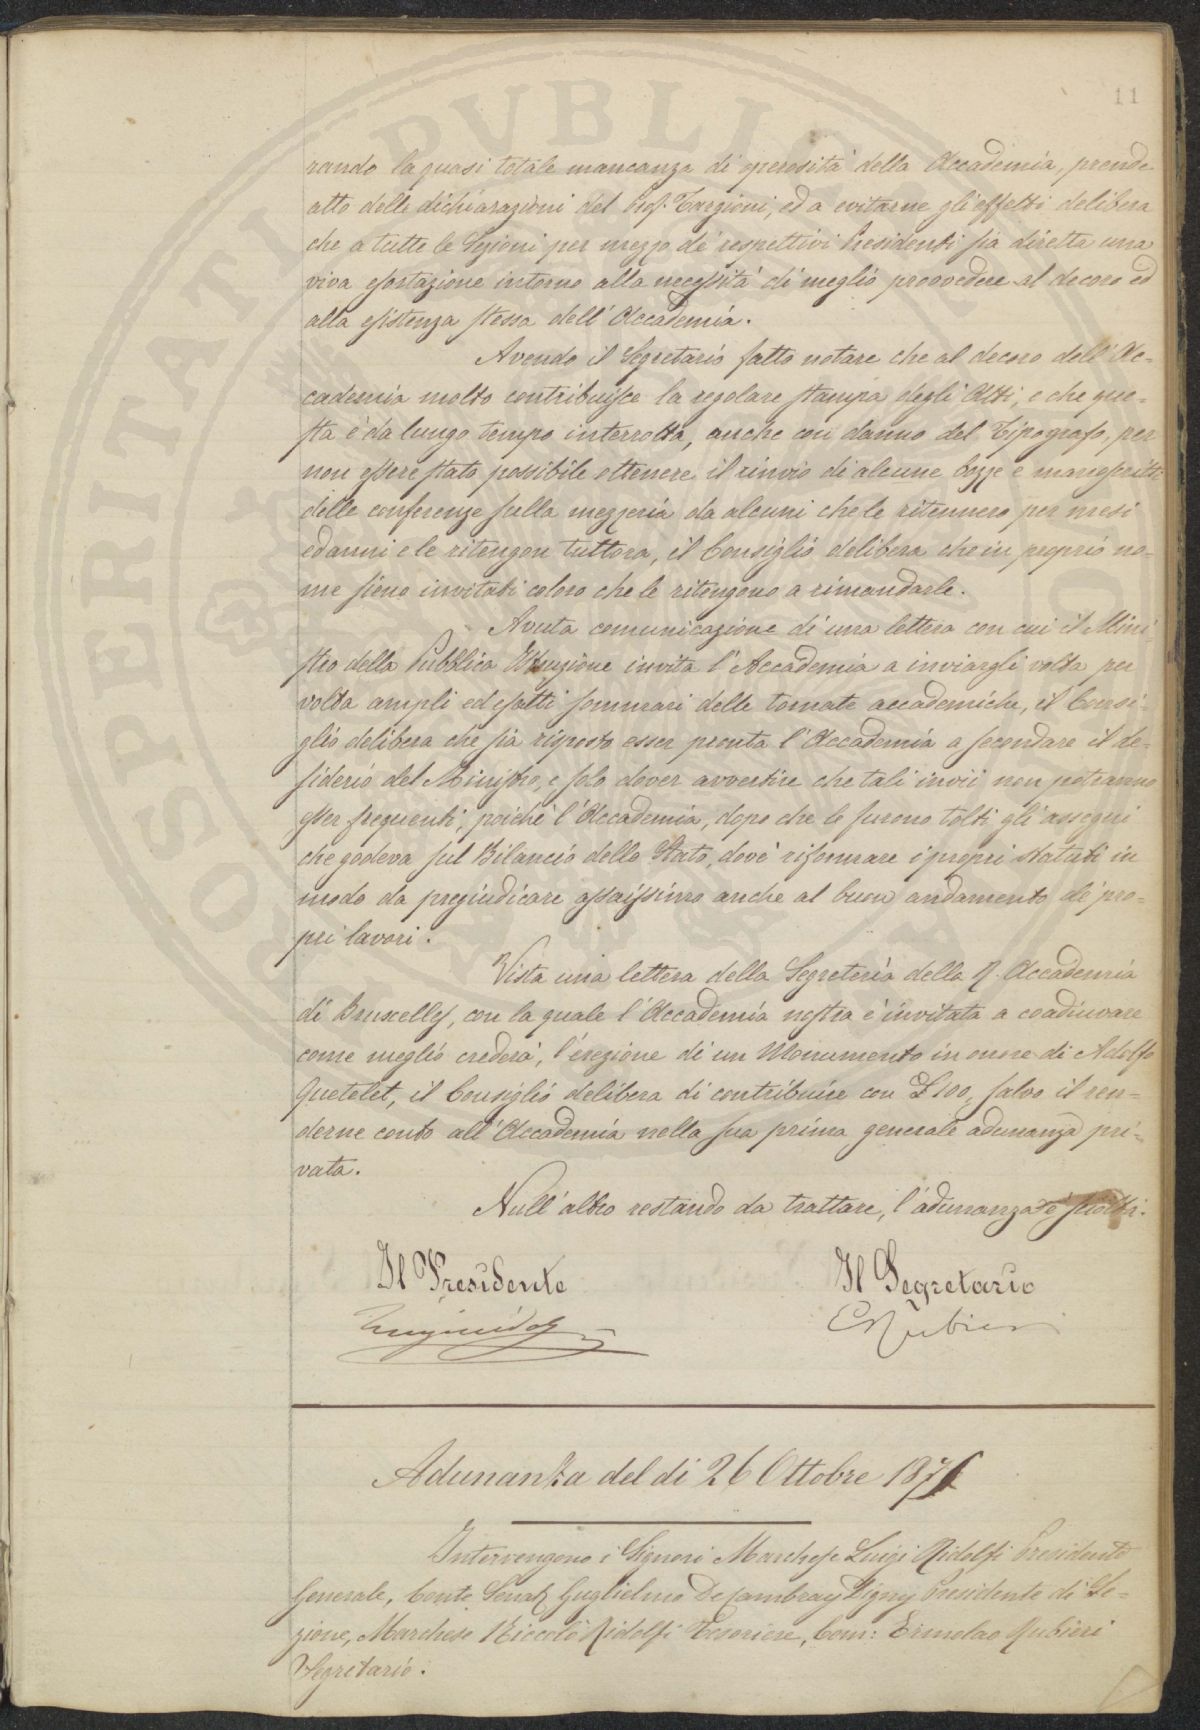 11
rando la quasi totale mancanza di operosità della Accademia, prende
atto delle dichiarazioni del Prof. Targioni, ed a evitarne gli effetti delibera
che a tutte le Sezioni per mezzo de' respettivi Presidenti sia diretta una
viva esortazione intorno alla necessità di meglio provvedere al decoro ed
alla esistenza stessa dell'Accademia.
Avendo il Segretario fatto notare che al decoro dell'Ac=
cademia molto contribuisce la regolare stampa degli Atti, e che que=
sta è da lungo tempo interrotta, anche con danno del Tipografo, per
non essere stato possibile ottenere il rinvio di alcune bozze e manoscritti
delle conferenze sulla mezzeria da alcuni che le ritennero per mesi
ed anni e le ritengon tuttora, il Consiglio delibera che in proprio no=
me sieno invitati coloro che le ritengono a rimandarle.
Avuta comunicazione di una lettera con cui il Mini=
stro della Pubblica Istruzione invita l'Accademia a inviargli volta per
volta ampli ed esatti sommari delle tornate accademiche, il Consi=
glio delibera che sia risposto esser pronta l'Accademia a secondare il de=
siderio del Ministro, e solo dover avvertire che tali invii non potranno
esser frequenti, poichè l'Accademia, dopo che le furono tolti gli assegni
che godeva sul Bilancio dello Stato, dovè riformare i propri Statuti in
modo da pregiudicare assaissimo anche al buon andamento de' pro=
pri lavori.
Vista una lettera della Segreteria della R. Accademia
di Bruxelles, con la quale l'Accademia nostra è invitata a coadiuvare
come meglio crederà, l'erezione di un Monumento in onore di Adolfo
Quetelet, il Consiglio delibera di contribuire con £ 100, salvo il ren=
derne conto all'Accademia nella sua prima generale adunanza pri=
vata.
Null'altro restando da trattare, l'adunanza è sciolta.
Il Presidente
Il Segretario
E Rubieri
Adunanza del dì 26 Ottobre 187
Intervengono i Signori Marchese Luigi Ridolfi Presidente
Generale, Conte Senat. Guglielmo De Cambray Digny Presidente di Se=
zione, Marchese Niccolò Ridolfi Tesoriere, Com: Ermolao Rubieri
Segretario.
PROSPERITATI PVBLICAE